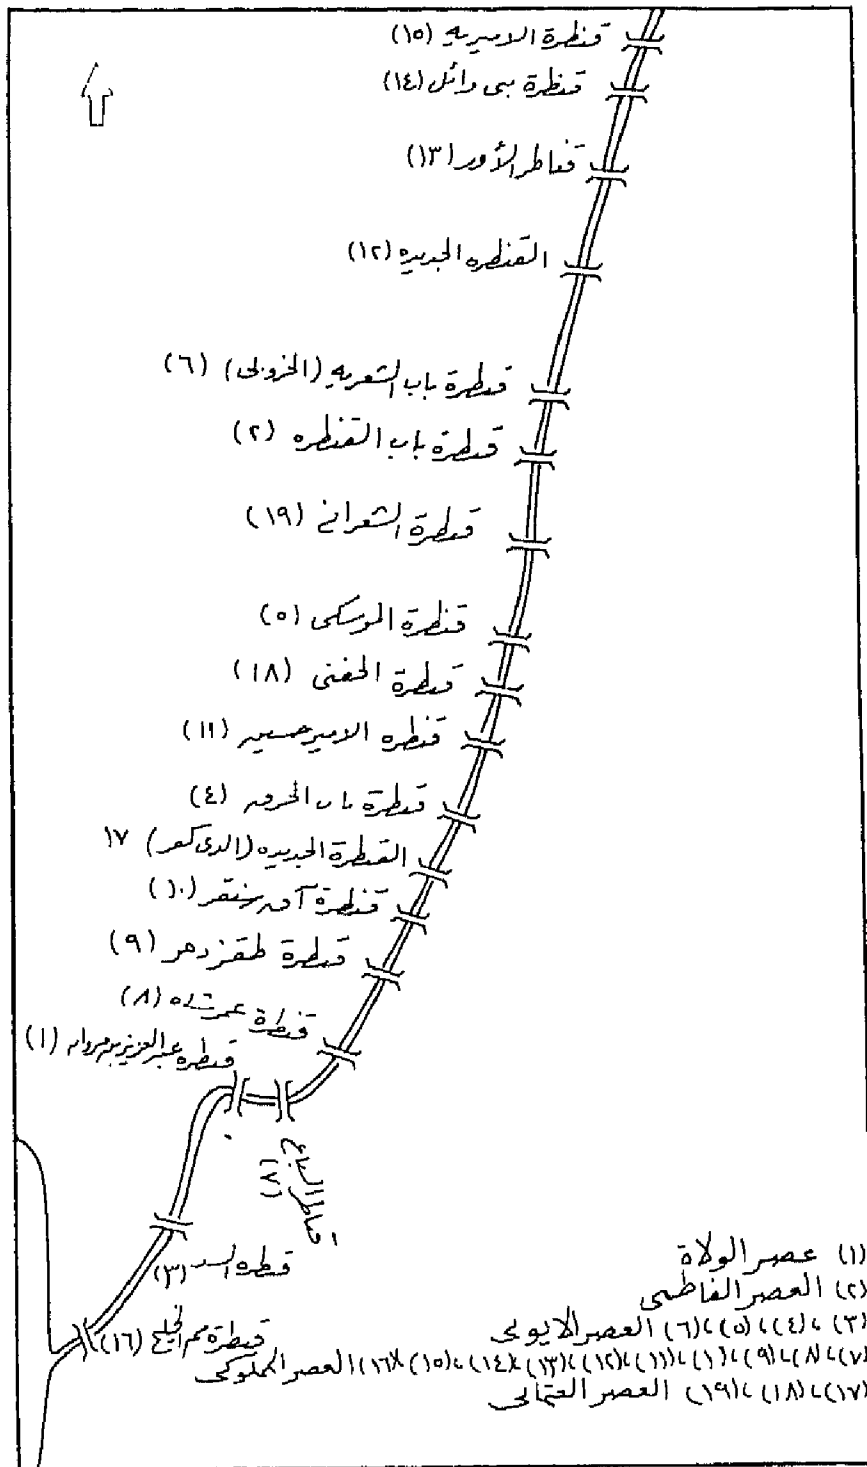 قنطرة الاميريه (١٥)
قنظرة بنى وائل (١٤)
قناطر الأوز (١٣)
القنطره الجديده (١٢)
قنطرة باب الشعريه (الخروبى) (٦)
قنطرة باب القنطره (٢)
قنطرة الشعرانى (١٩)
قنطرة الموسكى (٥)
قنطرة الحفنى (١٨)
قنطره الامير حسين (١١)
قنطرة باب الخرق (٤)
القنطرة الجديده (الذى كفر) ١٧
قنطرة آق سنقر (١٠)
قنطرة طقزدمر (٩)
قنطرة عمرشاه (٨)
قنطره عبد العزيز بن مروان (١)
قناطر السباع
(٧)
قنطره السد (٣)
قنطرة فم الخليج (١٦)
(١) عصر الولاة
(٢) العصر الفاطمى
(٣)، (٤)، (٥)، (٦) العصر الايوبى
(٧)، (٨)، (٩)، (١٠)، (١١)، (١٢)، (١٣)، (١٤)، (١٥)، (١٦) العصر المملوكى
(١٧)، (١٨)، (١٩) العصر العثمانى